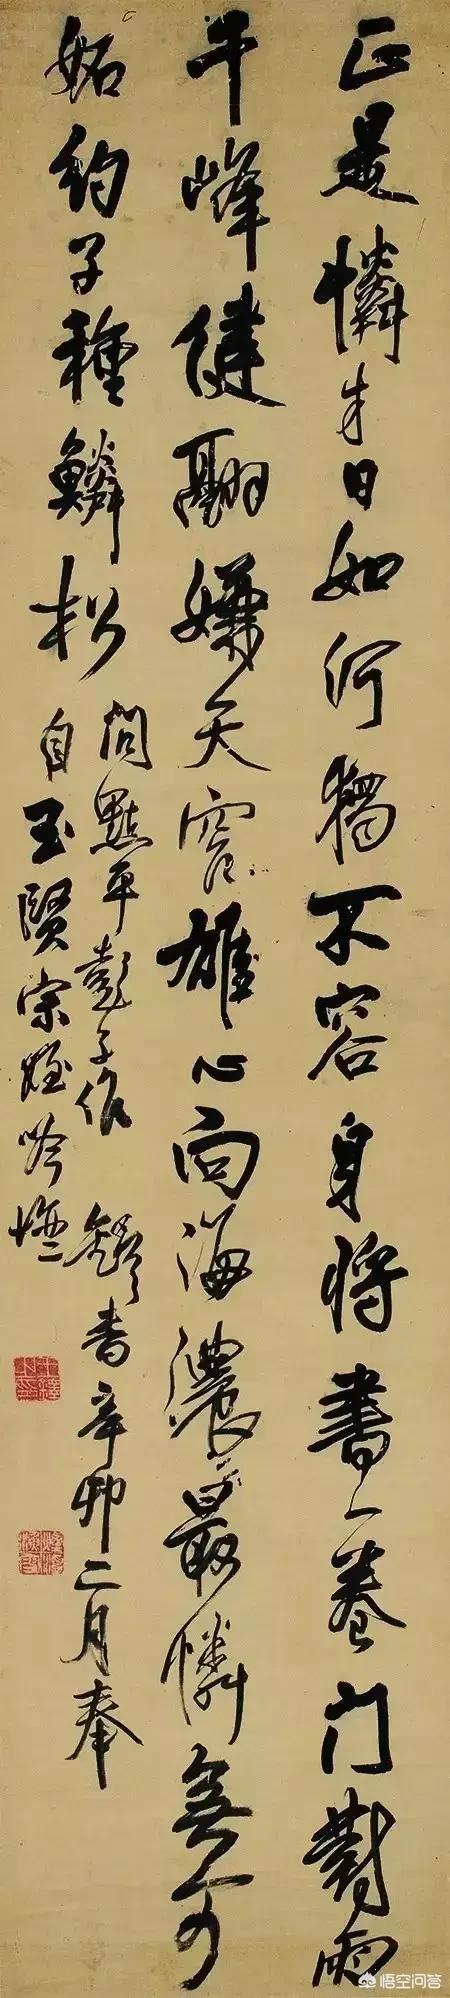 正是憐才日如何獨不容身將書一卷門對雨
千峰健翮嫌天窄雄心向海濃最憐無可
妬約子種鱗松
問點平彭子作 鐸書辛卯二月奉
自玉賢宗姪吟壇
悟空问答